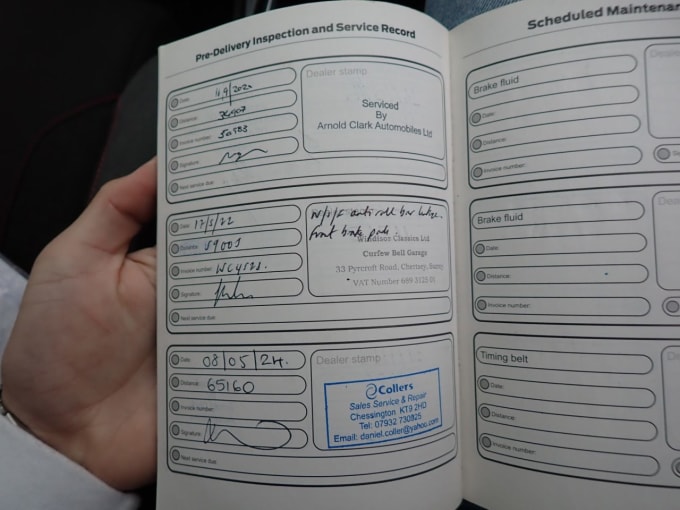 Pre-Delivery Inspection and Service Record
Date: 4/9/2020
Distance:
Invoice number: 50583
Signature:
Next service due:
Dealer stamp
Serviced
By
Arnold Clark Automobiles Ltd
Date: 17/5/22
Distance: 59005
Invoice number:
Signature:
Next service due:
N/S/F anti roll bar
front brake pads.
Windsor Classics Ltd
Curfew Bell Garage
33 Pyrcroft Road, Chertsey, Surrey
VAT Number 699 3125 01
Date: 08/05/24.
Distance: 65160
Invoice number:
Signature:
Next service due:
Dealer stamp
Collers
Sales Service & Repair
Chessington KT9 2HD
Tel: 07932 730825
Email: daniel.coller@yahoo.com
Scheduled
Brake fluid
Date:
Distance:
Invoice number:
Brake fluid
Date:
Distance:
Invoice number:
Timing belt
Date:
Distance:
Invoice number: